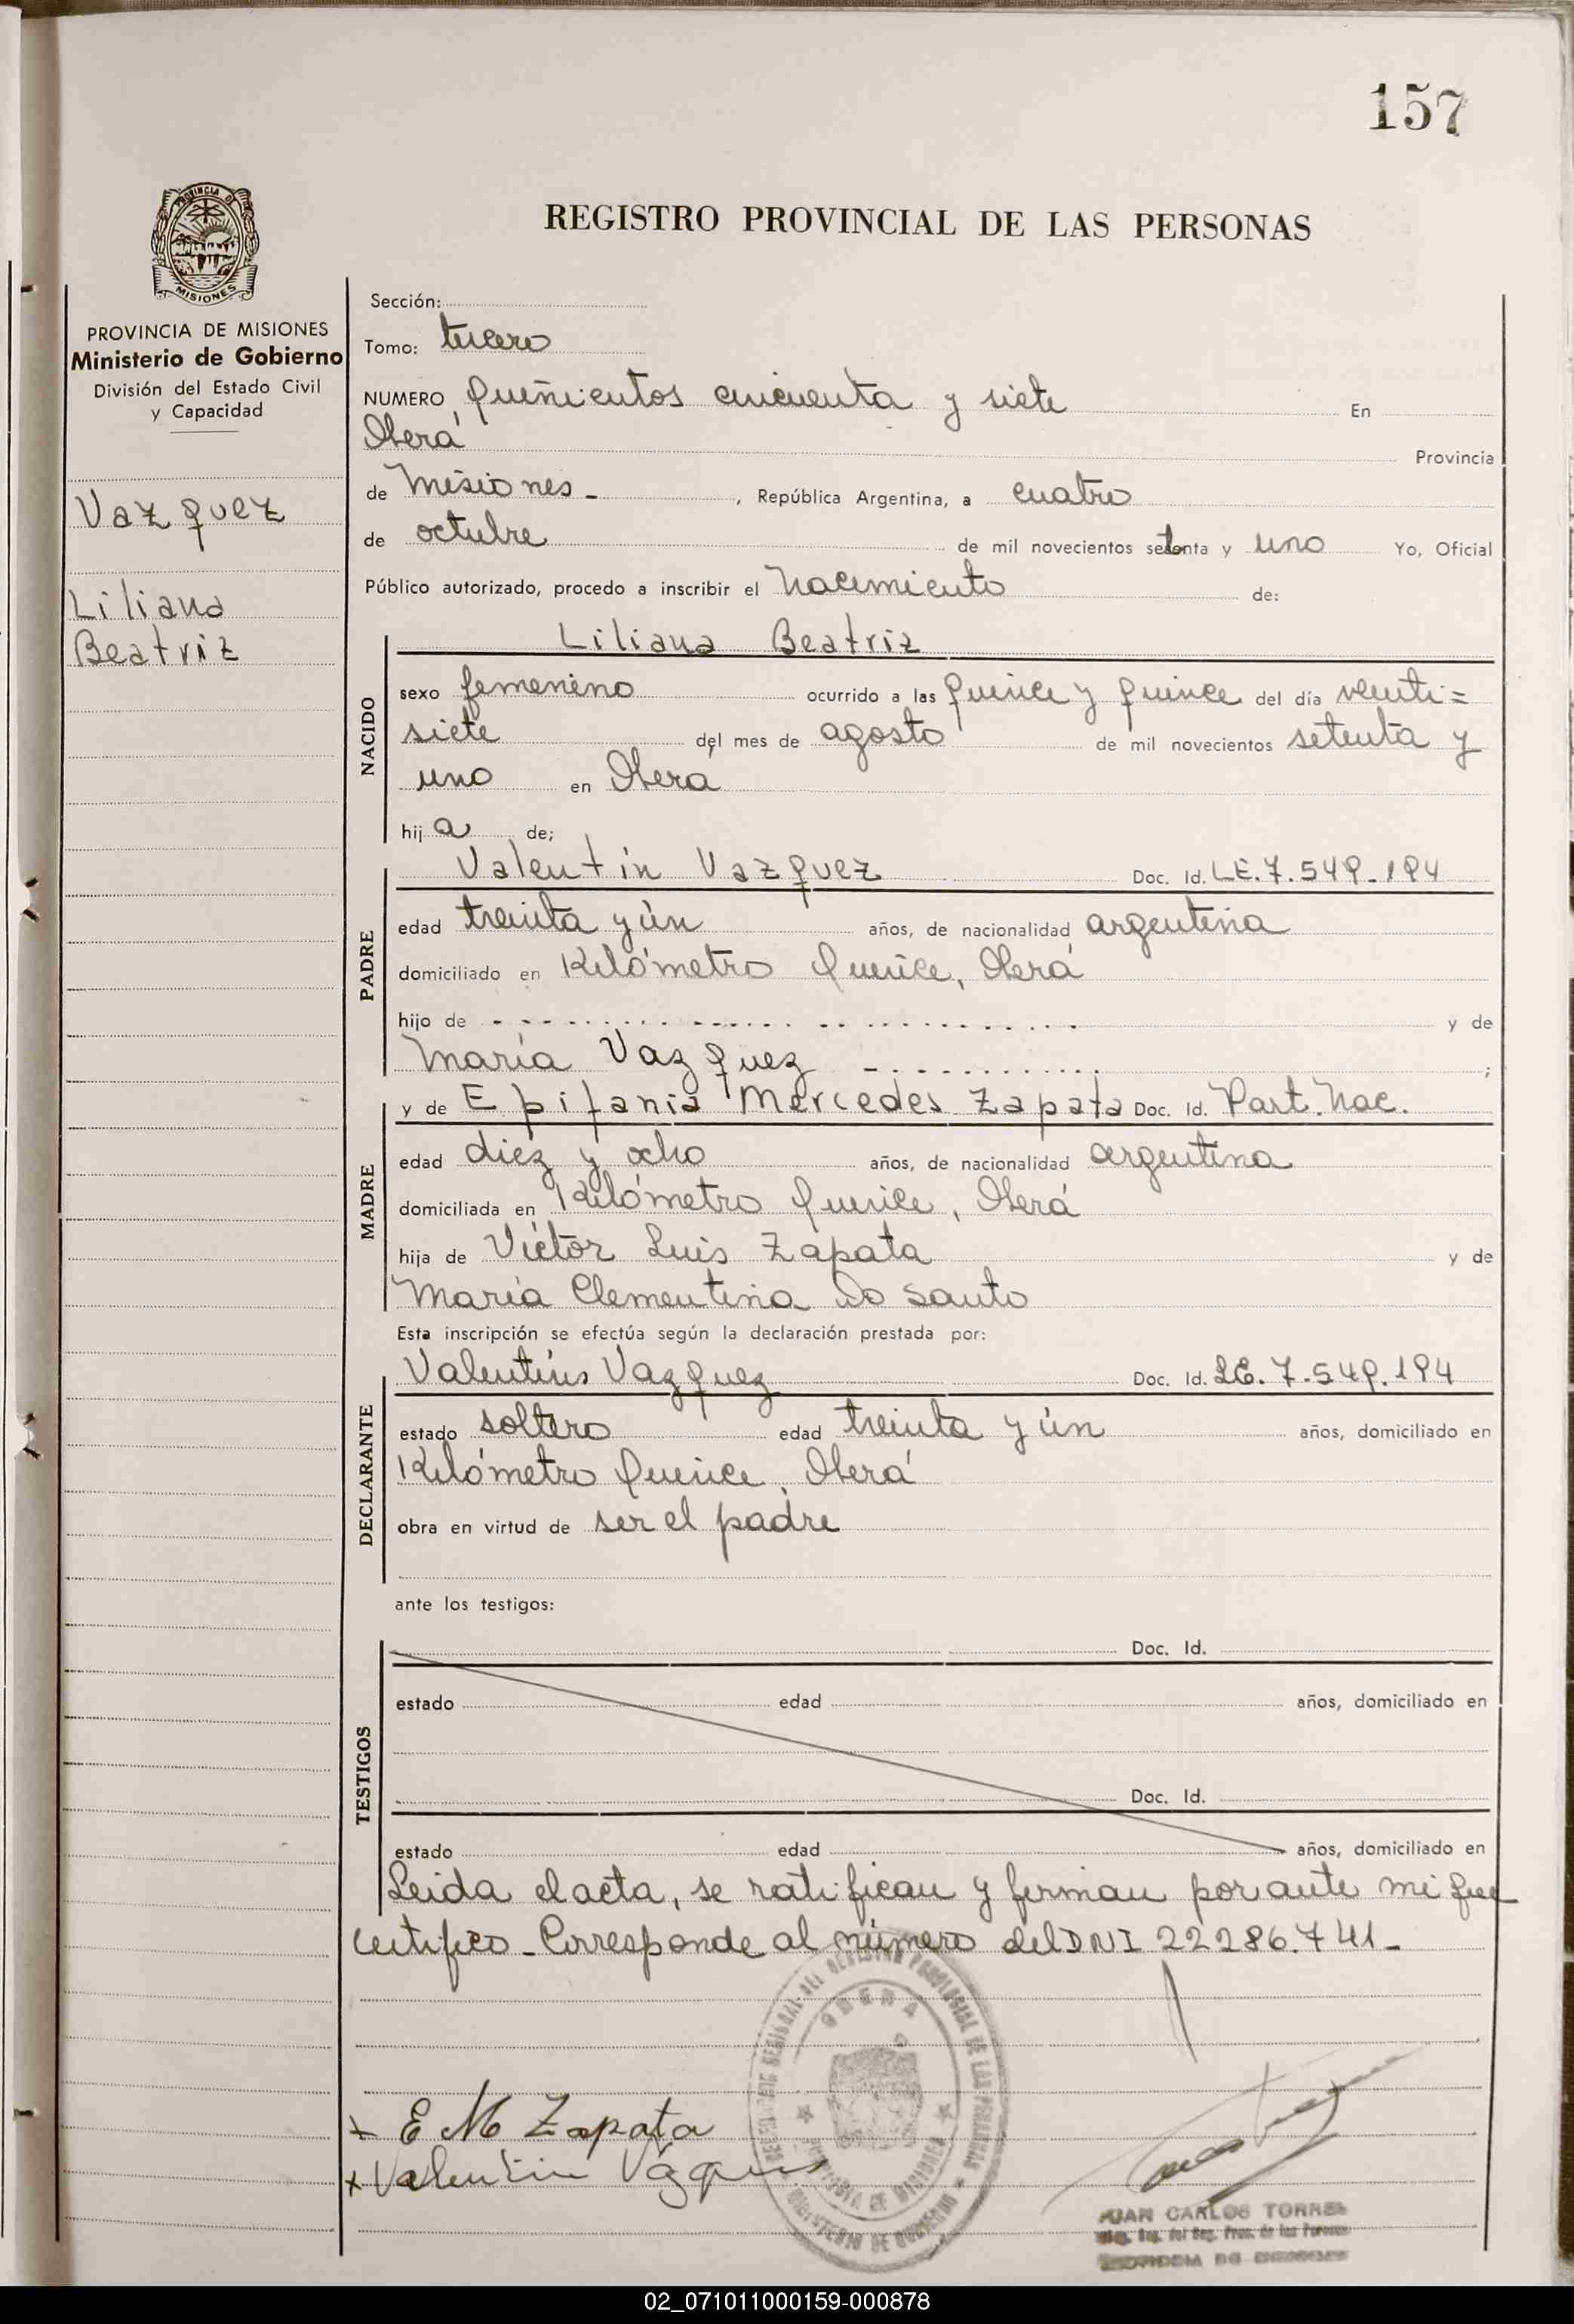 157
PROVINCIA DE
MISIONES
PROVINCIA DE MISIONES
Ministerio de Gobierno
División del Estado Civil
y Capacidad
Vazquez
Liliana
Beatriz
REGISTRO PROVINCIAL DE LAS PERSONAS
Sección:
Tomo: tercero
NUMERO, Quiñientos cincuenta y siete En
Oberá Provincia
de Misiones - , República Argentina, a cuatro
de octubre de mil novecientos setenta y uno Yo, Oficial
Público autorizado, procedo a inscribir el Nacimiento de:
Liliana Beatriz
NACIDO
sexo femenino ocurrido a las quince y quince del día veinti=
siete del mes de agosto de mil novecientos setenta y
uno en Oberá
hij a de;
PADRE
Valentín Vazquez Doc. Id. LE. 7.549.194
edad treinta y ún años, de nacionalidad argentina
domiciliado en Kilómetro Quince, Oberá
hijo de - - - - - - - - - - - - y de
María Vazquez - . . . . . . . . . . ;
MADRE
y de Epifania Mercedes Zapata Doc. Id. Part. Nac.
edad diez y ocho años, de nacionalidad argentina
domiciliada en Kilómetro Quince, Oberá
hija de Victor Luis Zapata y de
María Clementina Do Santo
Esta inscripción se efectúa según la declaración prestada por:
DECLARANTE
Valentín Vazquez Doc. Id. LE. 7.549.194
estado soltero edad treinta y ún años, domiciliado en
Kilómetro Quince, Oberá
obra en virtud de ser el padre
ante los testigos:
TESTIGOS
Doc. Id.
estado edad años, domiciliado en
Doc. Id.
estado edad años, domiciliado en
Leida el acta, se ratifican y firman por ante mi que
certifico - Corresponde al número del DNI 22286.741-
OBERA
PROVINCIA DE MISIONES
MINISTERIO DE GOBIERNO
x E M Zapata
x Valentin Vázquez
JUAN CARLOS TORRES
02_071011000159-000878